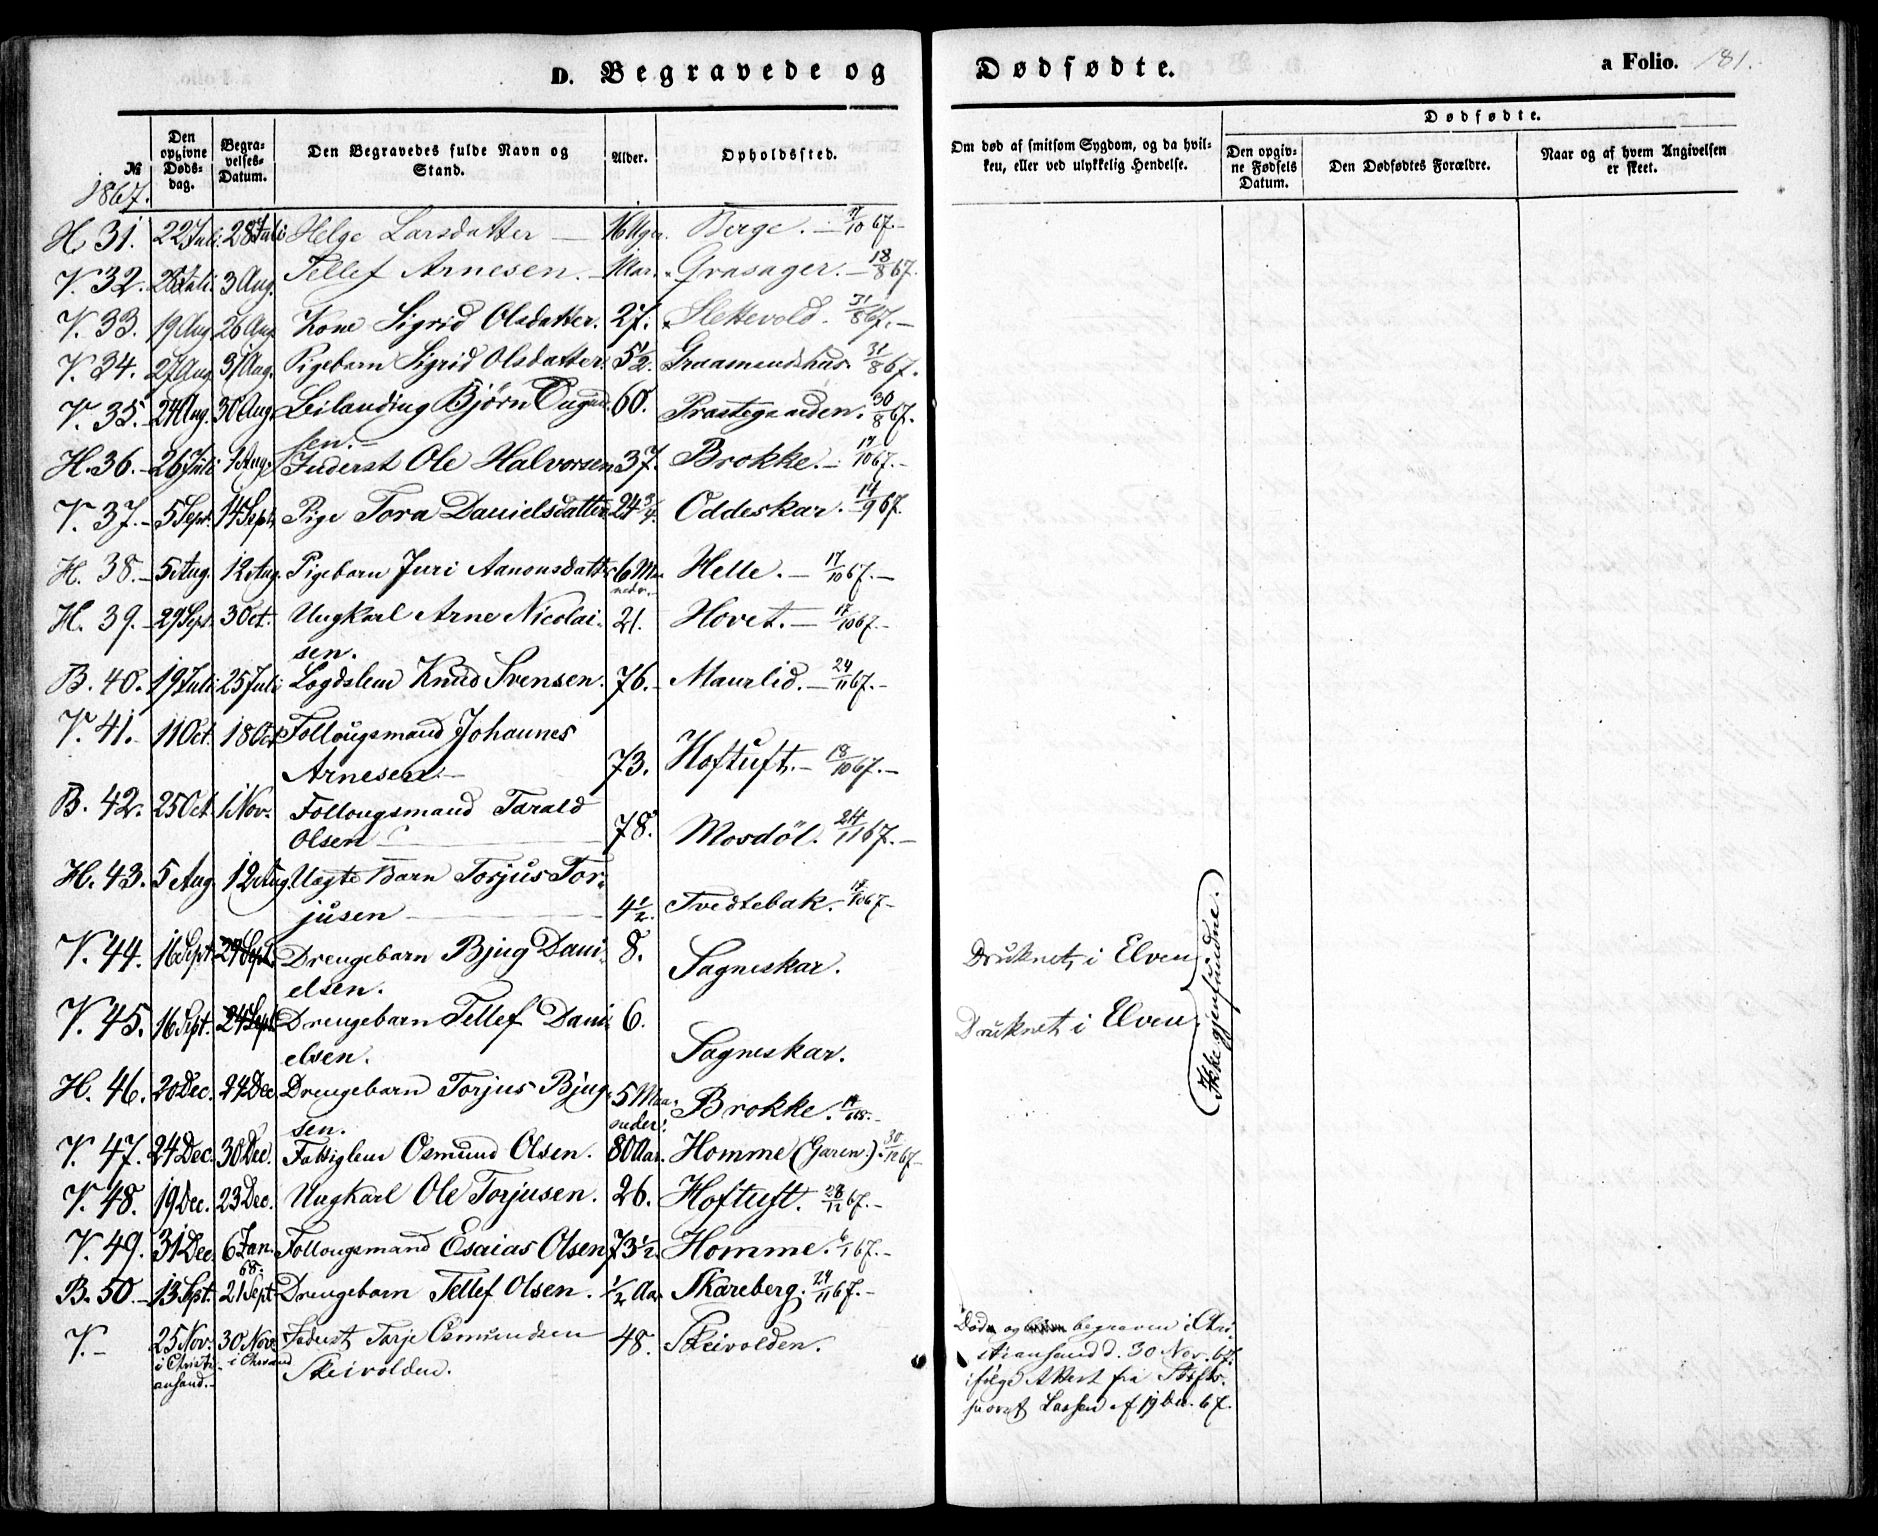 D. Begravede og Dødfødte.
a Folio. 181.
№
1867.
Den opgivne Døds-dag.
Begra-velses-Datum.
Den Begravedes fulde Navn og Stand.
Alder.
Opholdssted.
Om død af smitsom Sygdom, og da hvil-ken, eller ved ulykkelig Hendelse.
Dødfødte.
Den opgiv-ne Fødsels Datum.
Den Dødfødtes Forældre.
Naar og af hvem Angivelsen er skeet.
H. 31. 22 Juli. 28 Juli Helge Larsdatter — 16 Uger. Berge. — 17/10 67. —
V. 32. 28 Juli. 3 Aug. Tellef Arnesen. — 1 Aar. Grasager. — 18/8 67.
V. 33. 19 Aug. 26 Aug Kone Sigrid Olsdatter. 27. Slettevold. 31/8 67. —
V. 34. 27 Aug. 31 Aug. Pigebarn Sigrid Olsdatter 5 1/2. Graamundshus. 31/8 67.
V. 35. 24 Aug. 30 Aug. Leilænding Bjørn Ougund- 60. Præstegaarden. 30/8 67.
sen. —
H. 36. — 26 Juli 1 Aug. Inderst Ole Halvorsen 37. Brokke. — 17/10 67. —
V. 37. — 5 Sept. 14 Sept. Pige Tora Danielsdatter 24 3/4. Oddeskar. 14/9 67.
H. 38. — 5 Aug. 12 Aug. Pigebarn Juri Aanonsdatter 6 Ma-
neder. Helle. — 17/10 67. —
H. 39. — 29 Sept. 3 Oct. Ungkarl Arne Nicolai- 21. Hovet. — 17/10 67. —
sen.
B. 40. 19 Juli 25 Juli Lægdslem Knud Svensen. 76. — Maurlid. — 24/11 67. —
V. 41. 11 Oct. 18 Oct Follougsmand Johannes
Arnesen. — 73. Hoftuft. — 18/10 67. —
B. 42. 25 Oct. 1 Nov. Follougsmand Tarald
Olsen — 78. Mosdøl. 24/11 67. —
H. 43. 5 Aug. 12 Aug. Uægte Barn Torjus Tor-
jusen — 4 1/2. Tvedtebak. — 17/10 67 —
V. 44. 16 Sept. 24 Sept. Drengebarn Bjug Dani- 8. Sagneskar. Druknet i Elven
elsen.
V. 45. 16 Sept. 24 Sept. Drengebarn Tellef Dani- 6. Sagneskar. Druknet i Elven.
elsen.
Ikke gjenfundne.
H. 46. 20 Dec. 24 Dec Drengebarn Torjus Bjug- 5 Maa-
sen. neder. Brokke.
V. 47. 24 Dec. 30 Dec. Fattiglem Osmund Olsen. 80 Aar. Homme (Garen). 30/12 67 —
V. 48. 19 Dec. 23 Dec. Ungkarl Ole Torjusen. 26. Hoftuft. 28/12 67. —
V. 49. 31 Dec. 6 Jan. 68. Follougsmand Esaias Olsen 73 1/2. Homme. 6/1 67. —
B. 50. — 13 Sept. 21 Sept. Drengebarn Tellef Olsen. 1/2 Aar Skareberg. 24/11 67. —
V. — 25 Nov. i Christi-ansand. — 30 Nov. i Chrsand Inderst Tarje Osmundsen
Skeivolden. 48. Skeivolden.
Død og begraven i Chri-
stiansand d. 30 Nov. 67.
ifølge Attest fra Stifts-
provst Lassen af 19 Dec. 67.